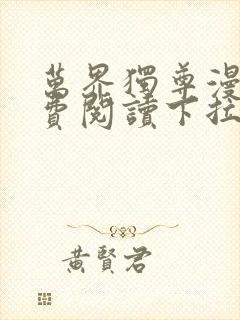 萬界獨尊漫
費閱讀下拉
黃賢君